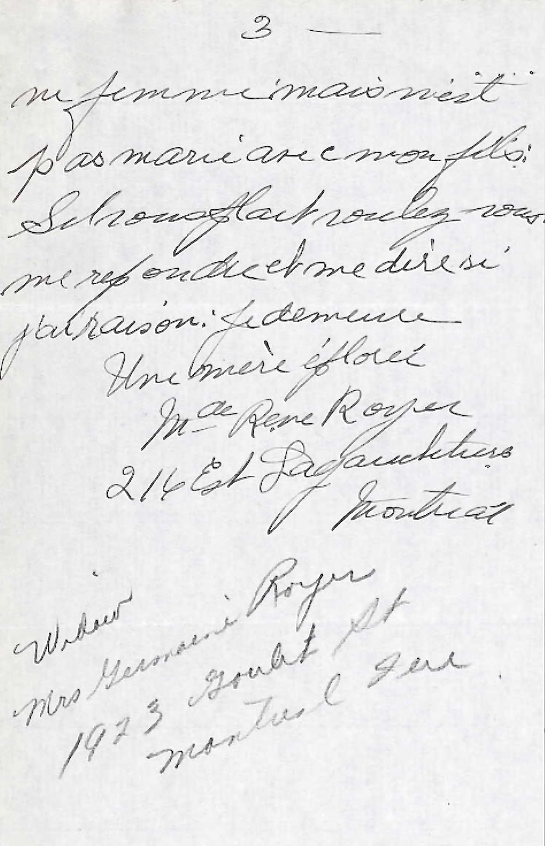 3 —
ne femme mais n'est
pas marie avec mon fils.
Sil vous plait voulez-vous
me repondre et me dire si
j'ai raison. Je demeure
Une mère éplorée
Mde Rene Royer
214 Est Lagauchetiere
Montreal
Widow
Mrs Germaine Royer
1923 St
Montreal